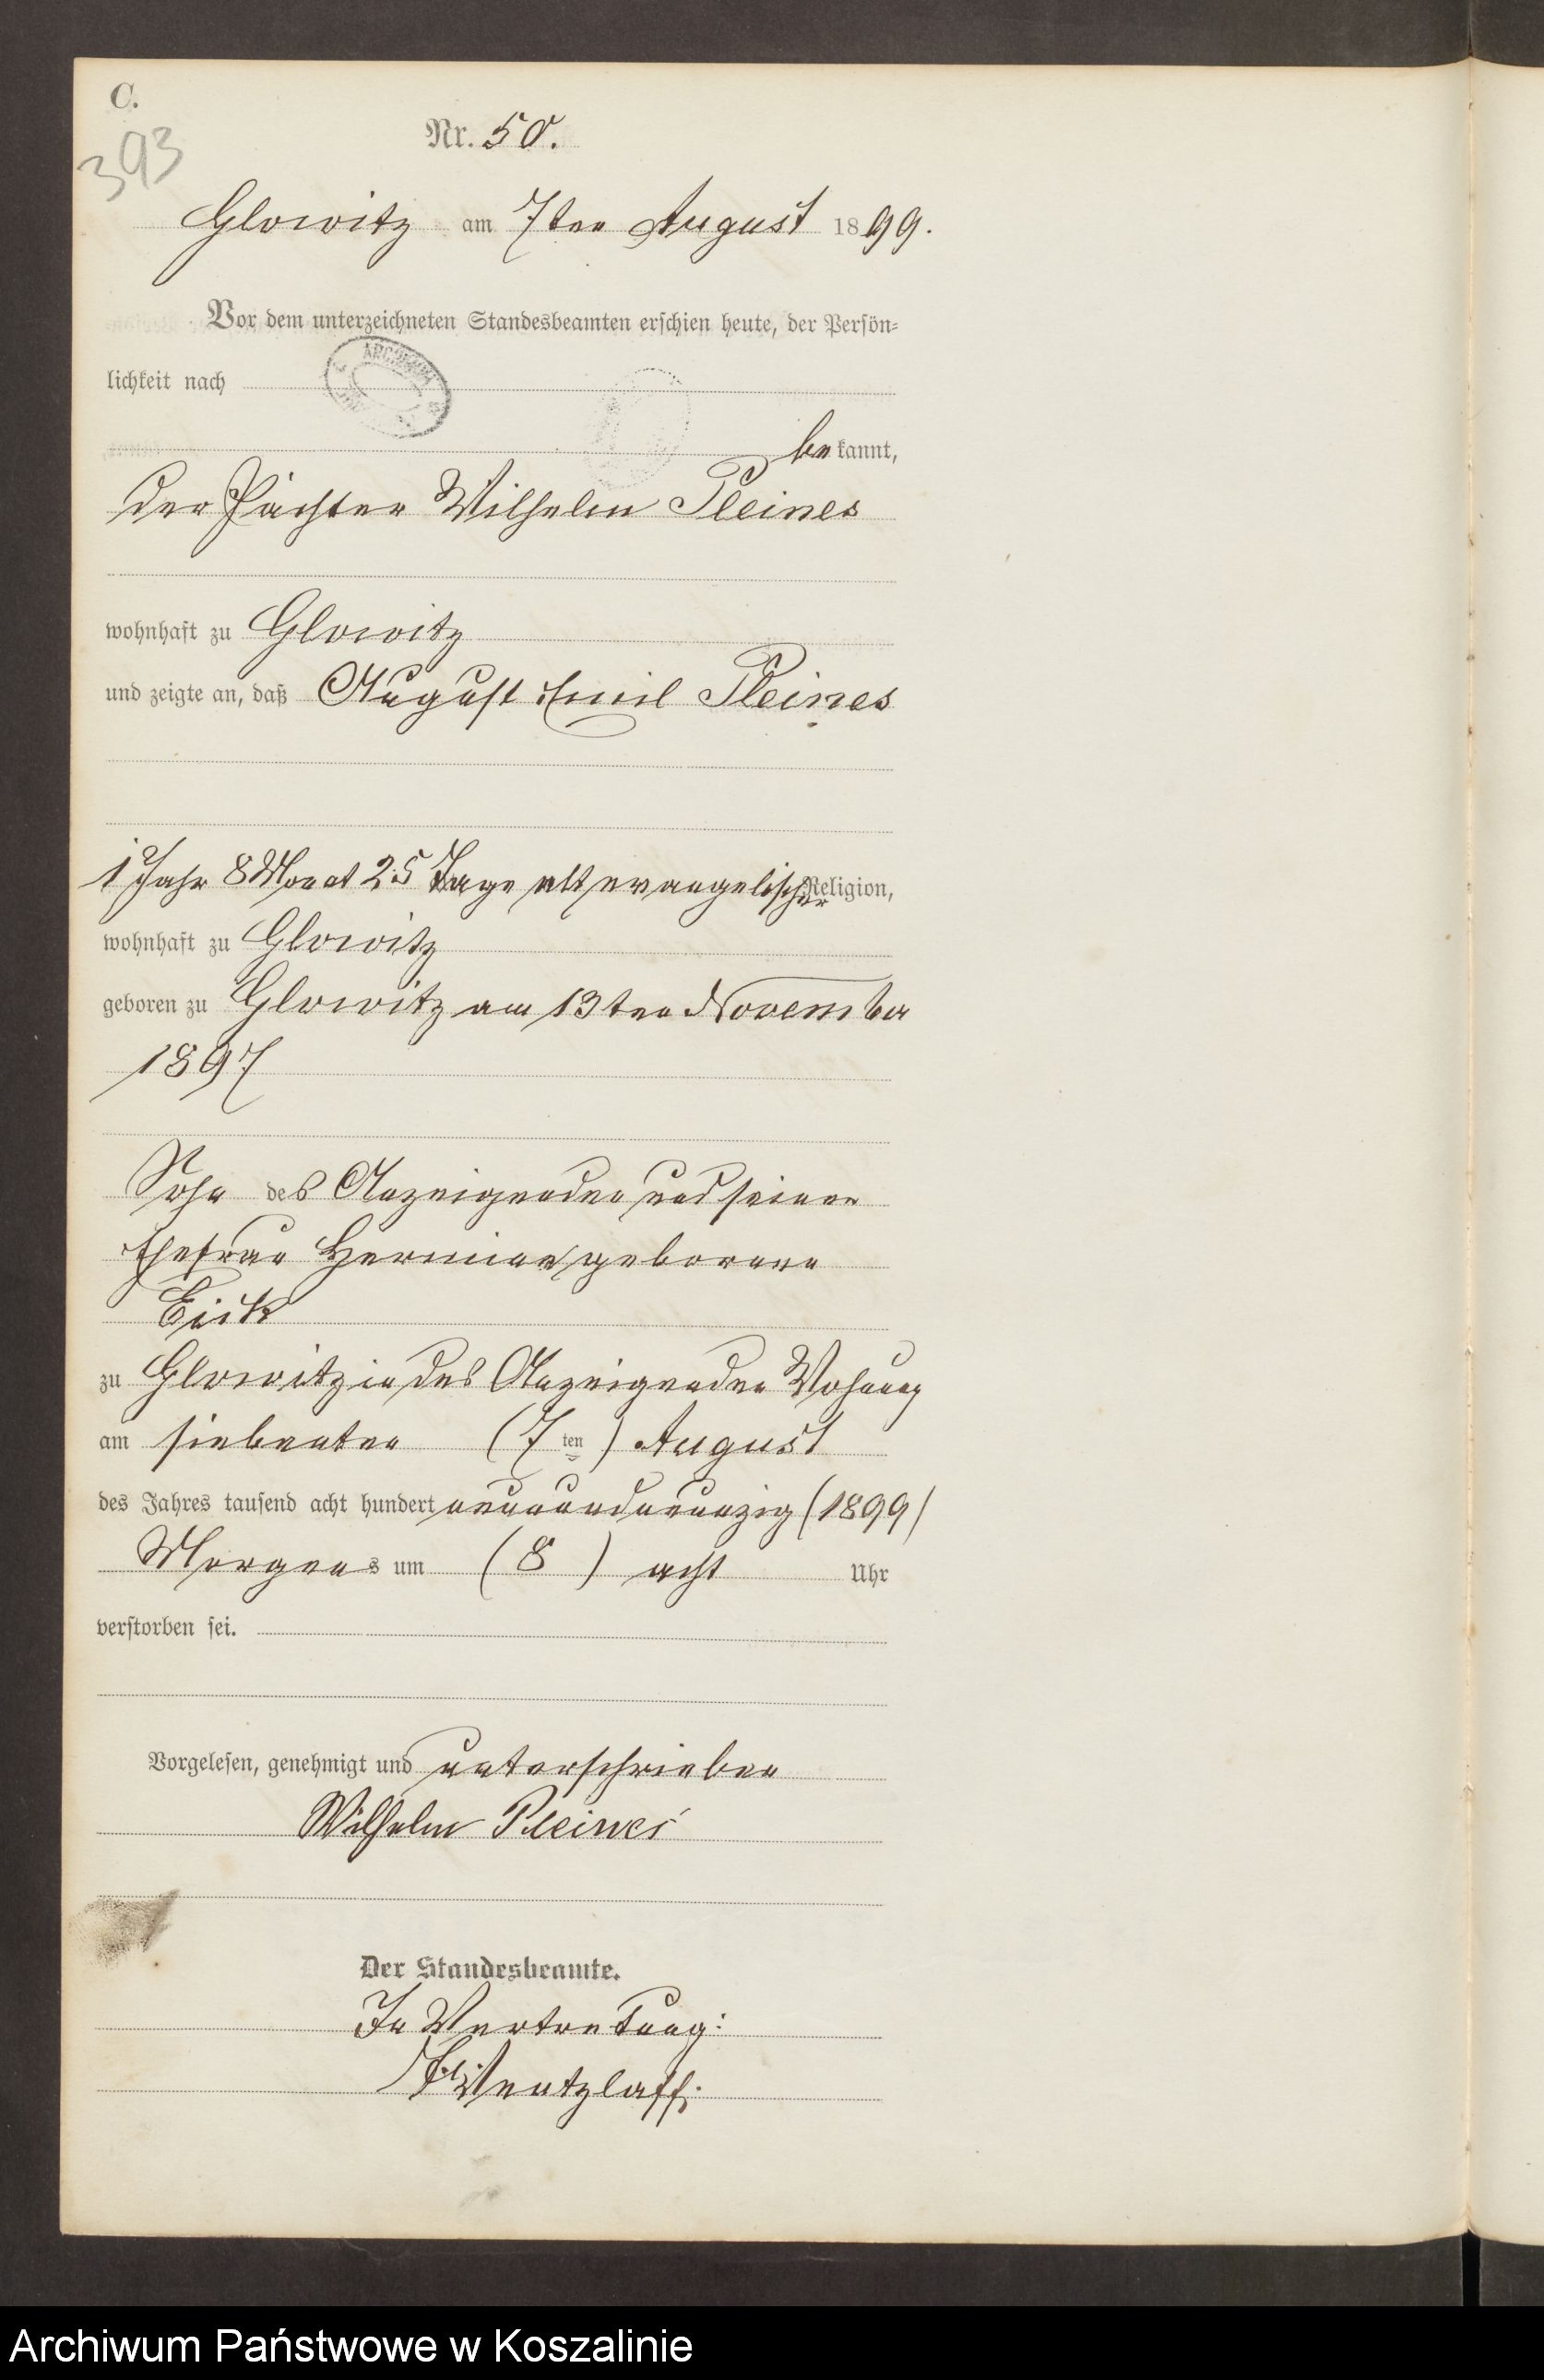 C.
393
Nr. 50.
Glowitz am 7ten August 1899.
Vor dem unterzeichneten Standesbeamten erschien heute, der Persön-
lichkeit nach
ARCHIWUM
bekannt,
der Pächter Wilhelm Pleines
wohnhaft zu Glowitz
und zeigte an, daß August Emil Pleines
1 Jahr 8 Monat 25 Tage alt evangelischer Religion,
wohnhaft zu Glowitz
geboren zu Glowitz am 13ten November
1897
Sohn des Anzeigenden und seiner
Ehefrau Hermine geborene
Eick
zu Glowitz in des Anzeigenden Wohnung
am siebenten (7ten) August
des Jahres tausend acht hundert neunundneunzig (1899)
Morgens um (8) acht Uhr
verstorben sei.
Vorgelesen, genehmigt und unterschrieben
Wilhelm Pleines
Der Standesbeamte.
In Vertretung:
Wentzlaff.
Archiwum Państwowe w Koszalinie